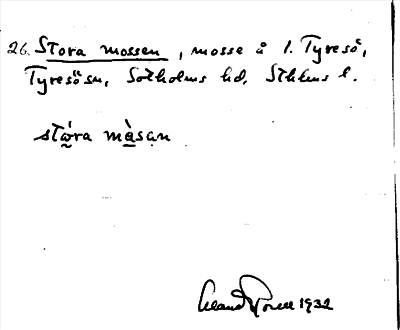 26. Stora mossen, mosse å l. Tyresö,
Tyresö sn, Sotholms hd, Sthlms l.
stὼra mὰsan
1932